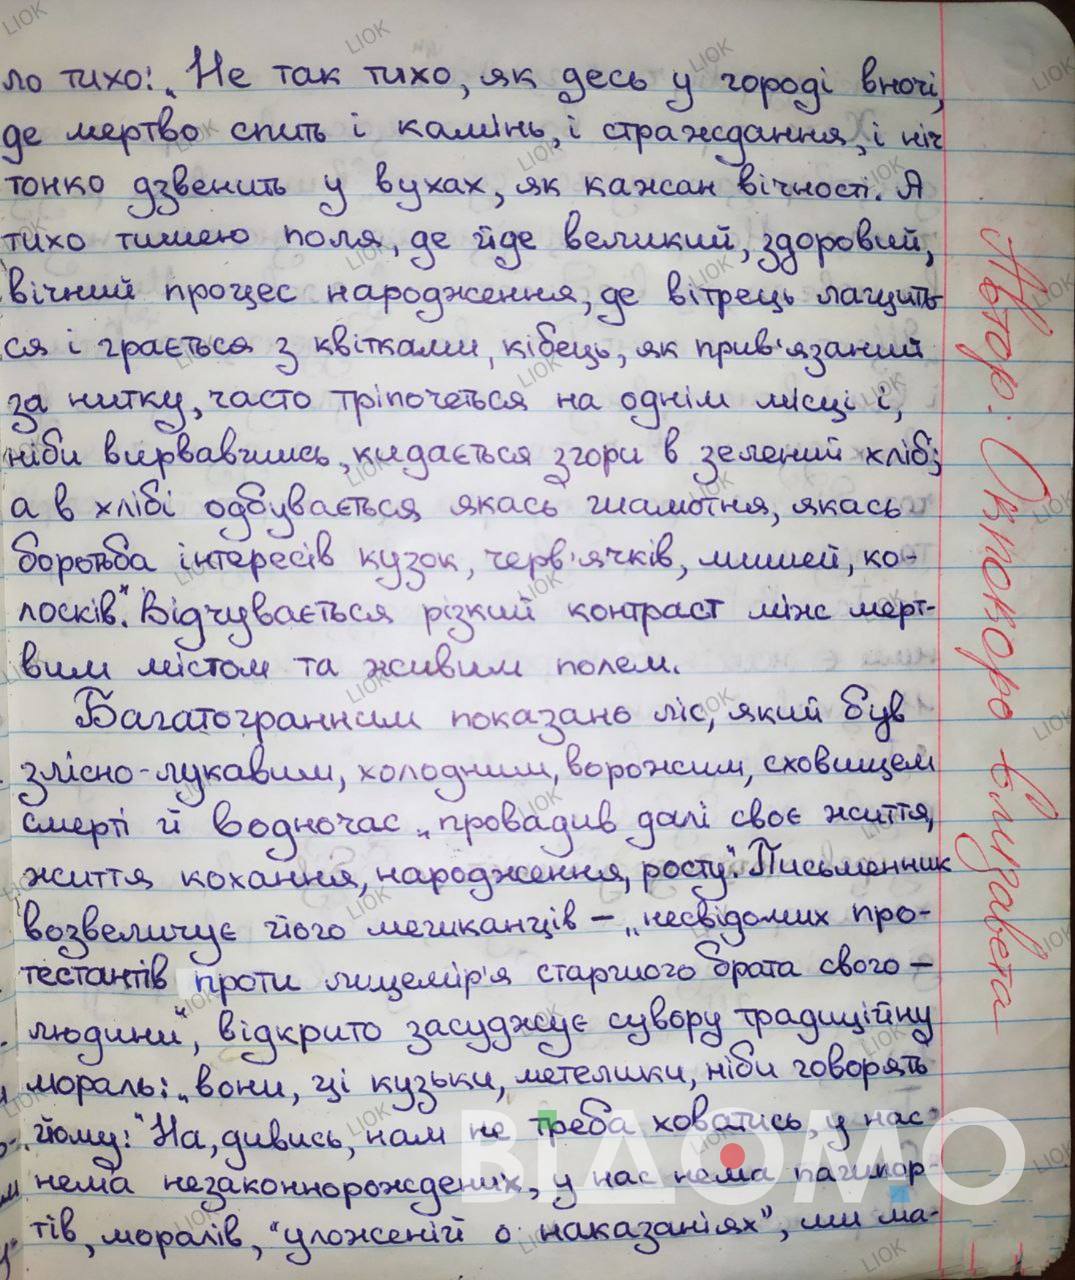 ло тихо: „Не так тихо, як десь у городі вночі,
де мертво спить і камінь, і страждання, і ніч
тонко дзвенить у вухах, як кажан вічності. А
тихо тишею поля, де йде великий, здоровий,
вічний процес народження, де вітрець лащить-
ся і грається з квітками, кібець, як прив'язаний
за нитку, часто тріпочеться на однім місці і,
ніби вирвавшись, кидається згори в зелений хліб;
а в хлібі одбувається якась шамотня, якась
боротьба інтересів кузок, черв'ячків, мишей, ко-
лосків". Відчувається різкий контраст між мерт-
вим містом та живим полем.
Багатогранним показано ліс, який був
злісно-лукавим, холодним, ворожим, сховищем
смерті й водночас „провадив далі своє життя,
життя кохання, народження, росту". Письменник
возвеличує його мешканців – „несвідомих про-
тестантів проти лицемір'я старшого брата свого –
людини", відкрито засуджує сувору традиційну
мораль: „вони, ці кузьки, метелики, ніби говорять
йому: "На, дивись, нам не треба ховатись, у нас
нема незаконнорождених, у нас нема пашпор-
тів, моралів, "уложеній о наказаніях", ми ма-
Автор: Оксюворо Єлизавета
ВІДОМО
LIOK